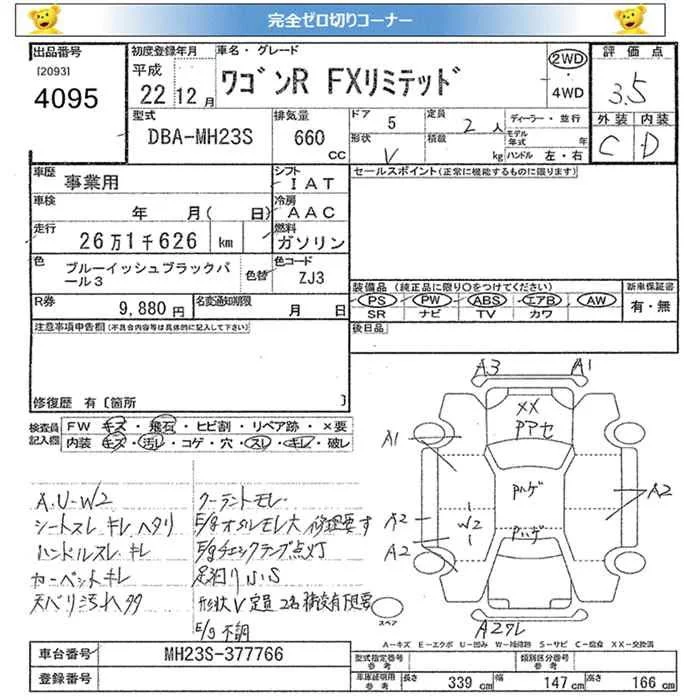 完全ゼロ切りコーナー
出品番号
[2093]
4095
初度登録年月
平成
22 12月
車名・グレード
ワゴンR FXリミテッド
2WD
4WD
評価点
3.5
外装 内装
C D
型式
DBA-MH23S
排気量
660
CC
ドア 5
定員 2人
形状 V
積載 kg
ディーラー・並行
モデル年式 年
ハンドル 左・右
車歴
事業用
シフト
IAT
車検
年 月( 日)
冷房
AAC
走行
26万1千626 km
燃料
ガソリン
色
ブルーイッシュブラックパール3
色替
色コード
ZJ3
R券
9,880円
名変通知期限
月 日
セールスポイント(正常に機能するものに限ります)
装備品 (純正品に限り○をつけてください)
PS PW ABS エアB AW
SR ナビ TV カワ
新車保証書
有・無
後日品
注意事項申告欄(不具合内容等は具体的に記入して下さい)
修復歴 有〔箇所 〕
検査員記入欄
FW キズ・飛石・ヒビ割・リペア跡・×要
内装 キズ・汚レ・コゲ・穴・スレ・キレ・破レ
A.U-W2
シートスレ キレ ヘタリ
ハンドルスレ キレ
カーペットキレ
天バリ汚れ タタ
クーラントモレ
E/gオイルモレ大 修理要す
E/gチェックランプ点灯
足廻りサビS
形状V 定員2名 積載有 同要
E/g不調
A3 A1
XX
Pアセ
A1
Pハゲ
A2
A2
W2
A2
Pハゲ
スペア
A2ワレ
A=キズ E=エクボ U=凹み W=補修跡 S=サビ C=腐食 XX=交換済
車台番号
MH23S-377766
登録番号
型式指定番号
参考
類別区分番号
参考
車庫証明用
参考
長さ 339 cm
幅 147 cm
高さ 166 cm